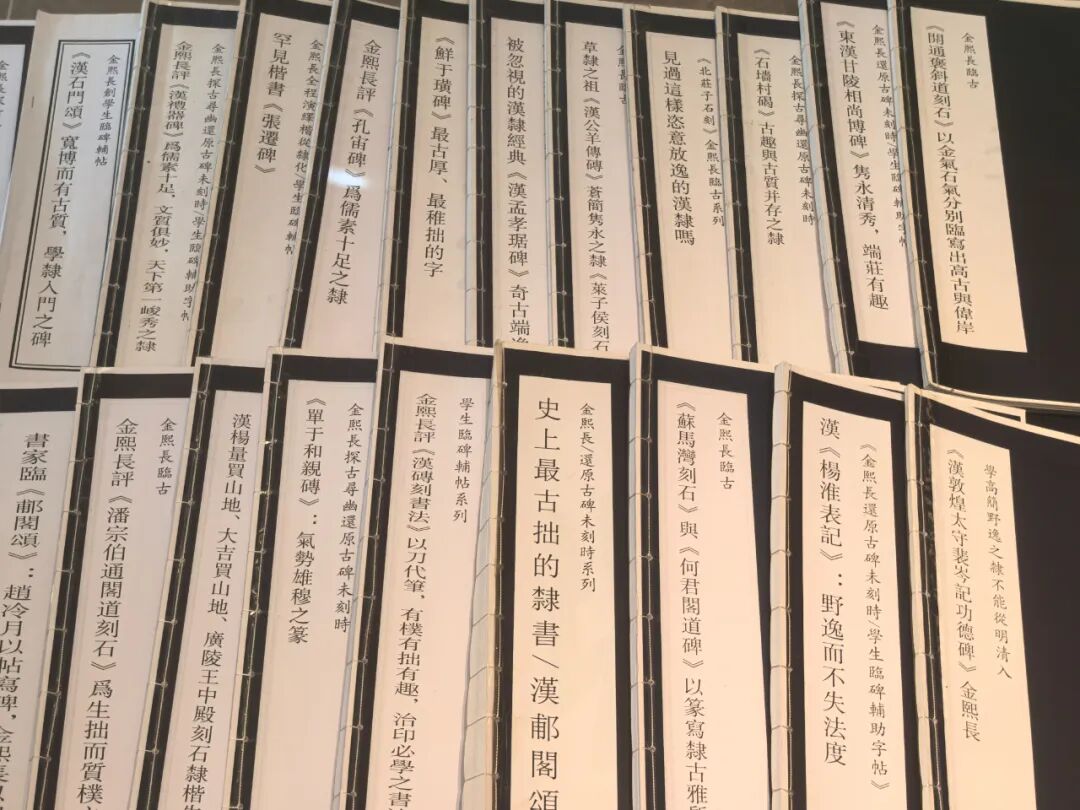 金熙長臨古
《開通褒斜道刻石》以金氣石氣分別臨寫出高古與偉岸
金熙長還原古碑未刻時/學生臨碑輔助字帖
《東漢甘陵相尚博碑》雋永清秀，端莊有趣
金熙長探古尋幽還原古碑未刻時
《石墙村碣》古趣與古質并存之隸
《北莊子石刻》金熙長臨古系列
見過這樣恣意放逸的漢隸嗎
金熙長臨古
草隸之祖《漢公羊傳磚》蒼簡雋永之隸《萊子侯刻石
被忽視的漢隸經典《漢孟孝琚碑》奇古端
《鮮于璜碑》最古厚、最稚拙的字
金熙長評《孔宙碑》爲儒素十足之隸
金熙長全程演繹楷從隸化/學生臨碑輔帖
罕見楷書《張遷碑》
金熙長探古尋幽還原古碑未刻時/學生臨碑輔助字帖
金熙長評《漢禮器碑》爲儒素十足、文質俱妙、天下第一峻秀之隸
金熙長創學生臨碑輔帖
《漢石門頌》寬博而有古質，學隸入門之碑
金熙長
學高簡野逸之隸不能從明清入
《漢敦煌太守裴岑記功德碑》金熙長
《金熙長還原古碑未刻時/學生臨碑輔助字帖》
漢《楊淮表記》：野逸而不失法度
金熙長臨古
《蘇馬灣刻石》與《何君閣道碑》以篆寫隸古雅
金熙長/還原古碑未刻時系列
史上最古拙的隸書/漢郙閣頌
學生臨碑輔帖系列
金熙長評《漢磚刻書法》以刀代筆，有樸有拙有趣，治印必學之書
金熙長探古尋幽還原古碑未刻時
《單于和親磚》：氣勢雄穆之篆
漢楊量買山地、大吉買山地、廣陵王中殿刻石隸楷
金熙長臨古
金熙長評《潘宗伯通閣道刻石》爲生拙而質樸
書家臨《郙閣頌》：趙冷月以帖寫碑，金熙長以